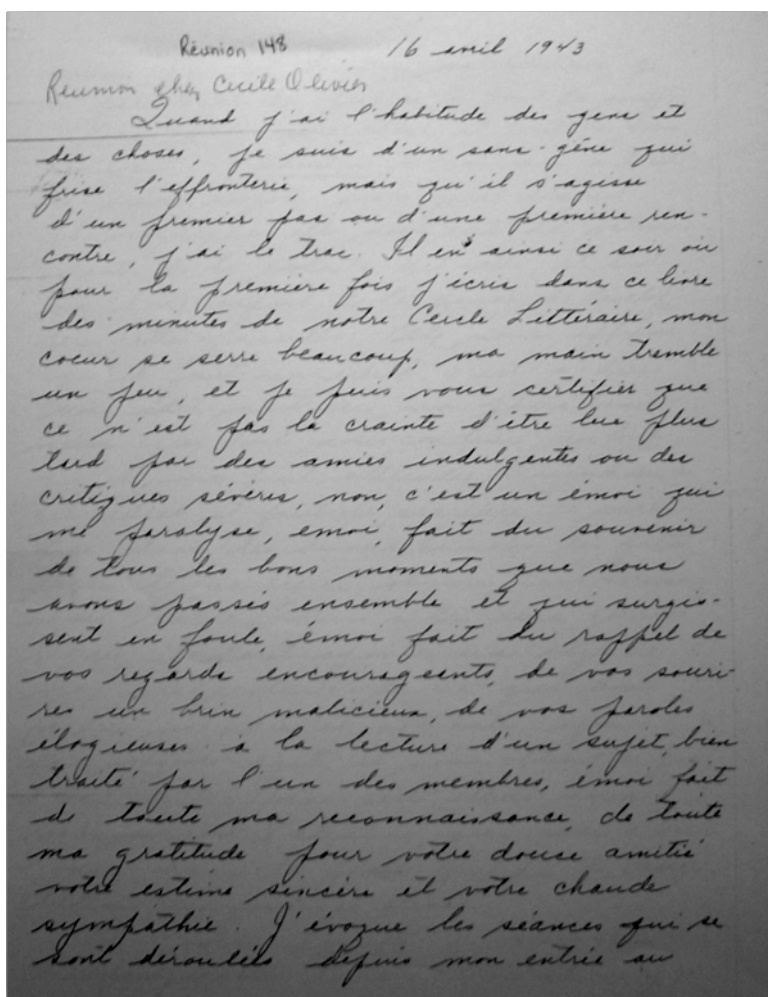 Réunion 148
16 avril 1943
Réunion chez Cecile Olivier
Quand j'ai l'habitude des gens et
des choses, je suis d'un sans-gêne qui
frise l'effronterie, mais qu'il s'agisse
d'un premier pas ou d'une première ren-
contre, j'ai le trac. Il en ainsi ce soir où
pour la première fois j'écris dans ce livre
des minutes de notre Cercle Littéraire, mon
coeur se serre beaucoup, ma main tremble
un peu, et je puis vous certifier que
ce n'est pas la crainte d'être lue plus
tard par des amies indulgentes ou des
critiques sévères, non, c'est un émoi qui
me paralyse, émoi, fait du souvenir
de tous les bons moments que nous
avons passés ensemble et qui surgis-
sent en foule, émoi fait du rappel de
vos regards encourageants, de vos souri-
res un brin malicieux, de vos paroles
élogieuses à la lecture d'un sujet, bien
traité par l'un des membres, émoi fait
de toute ma reconnaissance, de toute
ma gratitude pour votre douce amitié
votre estime sincère et votre chaude
sympathie. J'évoque les séances qui se
sont déroulées depuis mon entrée au